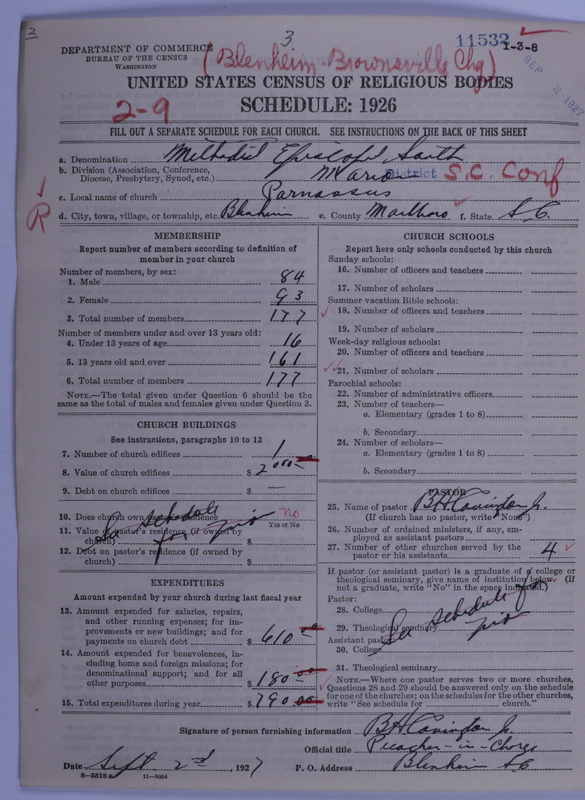 3
3
11532 1-3-8
DEPARTMENT OF COMMERCE
BUREAU OF THE CENSUS
WASHINGTON
(Blenheim-Brownsville Chg)
SEP 3 1927
UNITED STATES CENSUS OF RELIGIOUS BODIES
2-9
SCHEDULE: 1926
FILL OUT A SEPARATE SCHEDULE FOR EACH CHURCH. SEE INSTRUCTIONS ON THE BACK OF THIS SHEET
a. Denomination Methodist Episcopal South
b. Division (Association, Conference, Diocese, Presbytery, Synod, etc.) Marion District S.C. Conf
c. Local name of church Parnassus
R
d. City, town, village, or township, etc. Blenheim e. County Marlboro f. State S.C.
MEMBERSHIP
Report number of members according to definition of
member in your church
Number of members, by sex:
1. Male 84
2. Female 93
3. Total number of members 177
Number of members under and over 13 years old:
4. Under 13 years of age 16
5. 13 years old and over 161
6. Total number of members 177
NOTE.—The total given under Question 6 should be the
same as the total of males and females given under Question 3.
CHURCH BUILDINGS
See instructions, paragraphs 10 to 12
7. Number of church edifices 1
8. Value of church edifices $ 2000
9. Debt on church edifices $ —
10. Does church own pastor's residence No
Yes or No
11. Value of pastor's residence (if owned by
church) $
12. Debt on pastor's residence (if owned by
church) $
See schedule for
EXPENDITURES
Amount expended by your church during last fiscal year
13. Amount expended for salaries, repairs,
and other running expenses; for im-
provements or new buildings; and for
payments on church debt $ 610
14. Amount expended for benevolences, in-
cluding home and foreign missions; for
denominational support; and for all
other purposes $ 180.00
15. Total expenditures during year $ 790.00
CHURCH SCHOOLS
Report here only schools conducted by this church
Sunday schools:
16. Number of officers and teachers
17. Number of scholars
Summer vacation Bible schools:
18. Number of officers and teachers
19. Number of scholars
Week-day religious schools:
20. Number of officers and teachers
21. Number of scholars
Parochial schools:
22. Number of administrative officers
23. Number of teachers—
a. Elementary (grades 1 to 8)
b. Secondary
24. Number of scholars—
a. Elementary (grades 1 to 8)
b. Secondary
PASTOR
25. Name of pastor B H Covington Jr.
(If church has no pastor, write "None")
26. Number of ordained ministers, if any, em-
ployed as assistant pastors
27. Number of other churches served by the
pastor or his assistants 4
If pastor (or assistant pastor) is a graduate of a college or
theological seminary, give name of institution below. (If
not a graduate, write "No" in the space indicated.)
Pastor:
28. College
29. Theological seminary
Assistant pastor:
30. College
See schedule for
31. Theological seminary
NOTE.—Where one pastor serves two or more churches,
Questions 28 and 29 should be answered only on the schedule
for one of the churches; on the schedules for the other churches,
write "See schedule for church."
Signature of person furnishing information B H Covington Jr.
Official title Preacher-in-Charge
Date Sept 2nd, 1927 P. O. Address Blenheim S.C.
8—5518a 11—9024